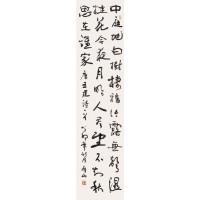 中庭地白樹棲鴉冷露無聲濕
桂花今夜月明人盡望不知秋
思在誰家 唐王建詩